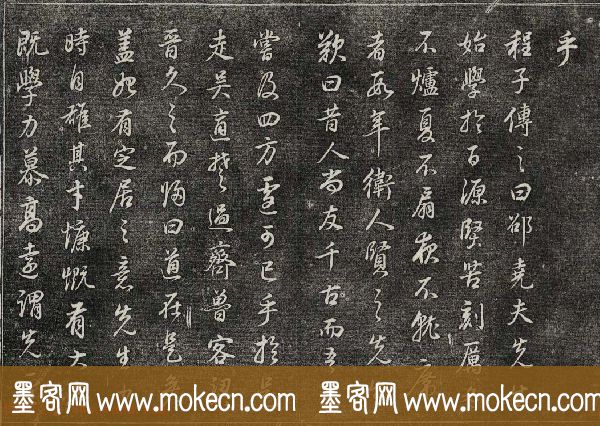 乎
程子傳之曰邵堯夫先生
始學於百源堅苦刻厲冬
不爐夏不扇夜不就席
者數年衛人賢之先
歎曰昔人尚友千古而吾
嘗及四方遽可已乎於是
走吳適楚過齊魯客梁
晉久之而歸曰道在是矣
蓋始有定居之意先生少
時自雄其才慷慨有大
既學力慕高遠謂先
墨客网 www.mokecn.com 墨客网 www.mokecn.com